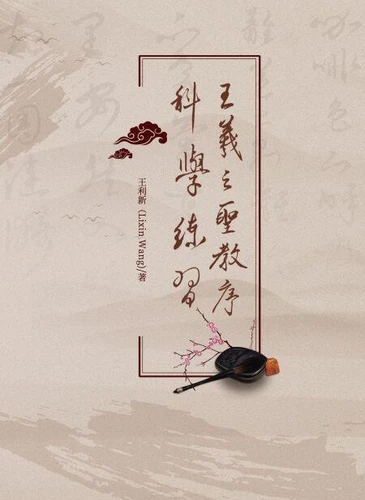 王羲之聖教序
科學練習
王利新 (Lixin Wang)/著